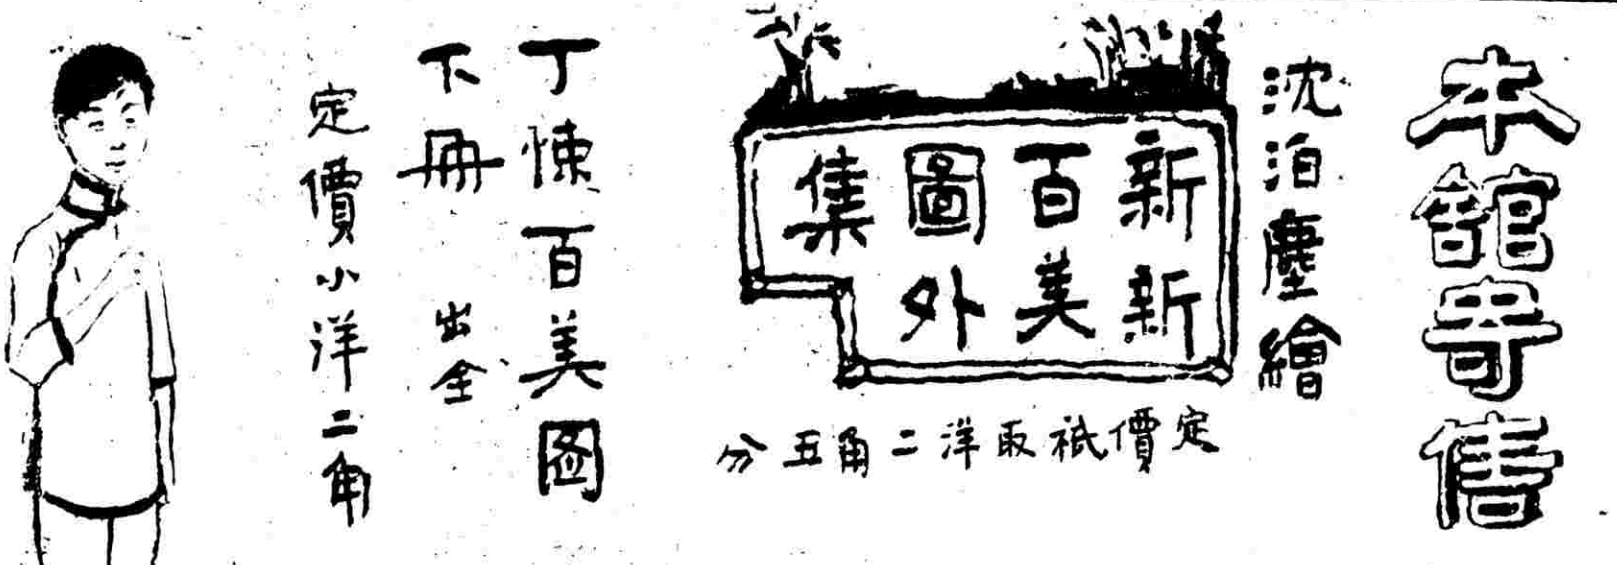 本舘寄售
沈泊塵繪
新新
百美
圖外
集
定價祇取洋二角五分
丁悚百美图
下冊 出全
定價小洋二角